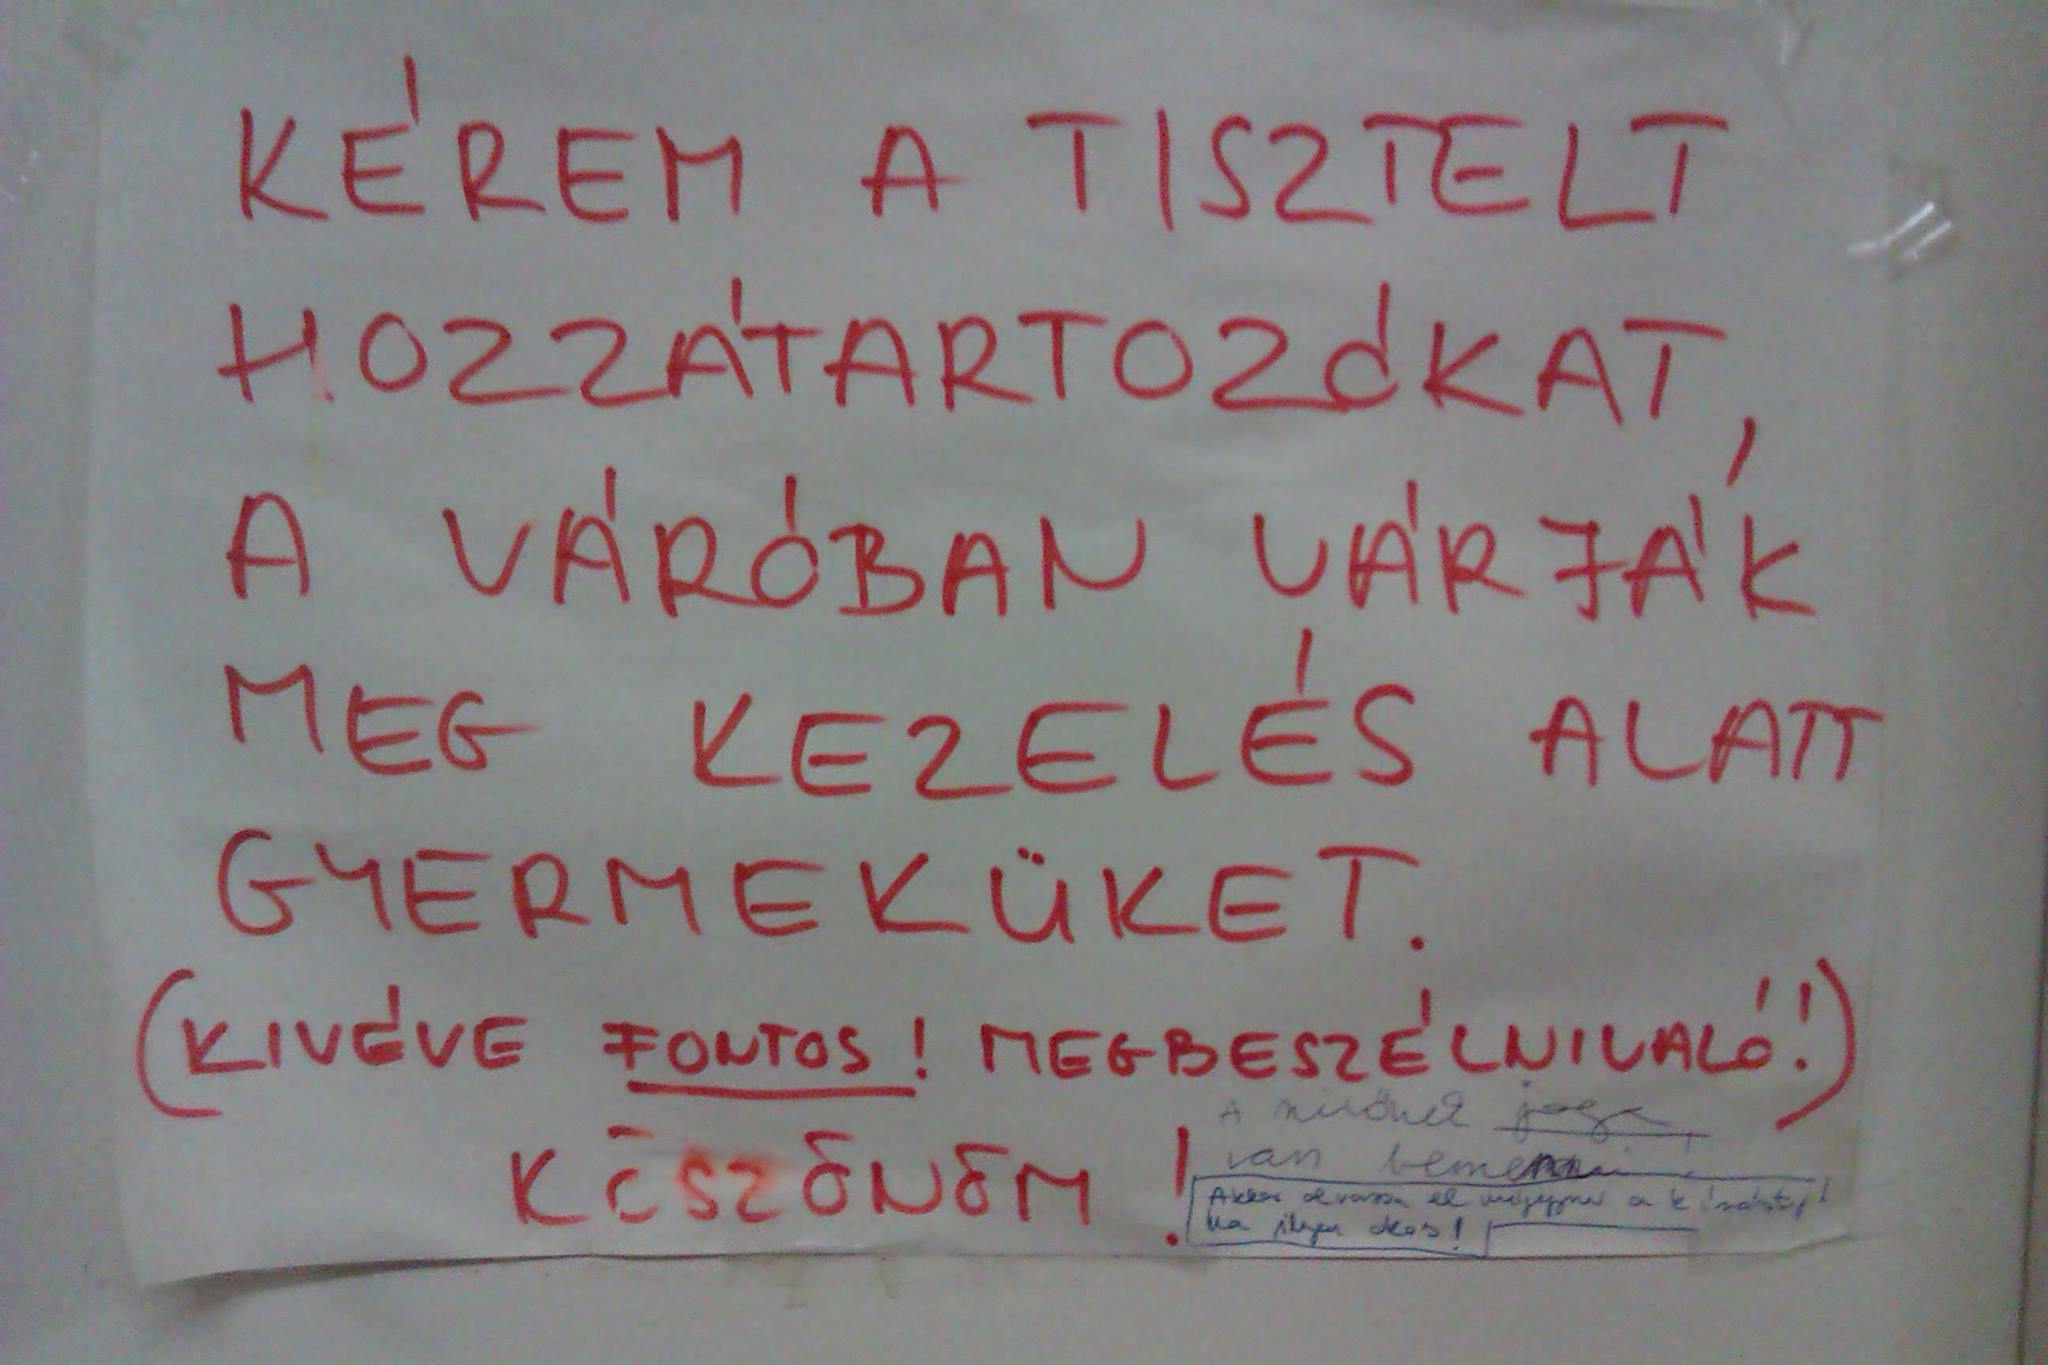 KÉREM A TISZTELT
HOZZÁTARTOZÓKAT,
A VÁRÓBAN VÁRJÁK
MEG KEZELÉS ALATT
GYERMEKÜKET.
(KIVÉVE FONTOS! MEGBESZÉLNIVALÓ!)
KÖSZÖNÖM!
A szülőnek joga
van bemenni!
Akkor olvassa el mégegyszer a kiírást,
ha ilyen okos!